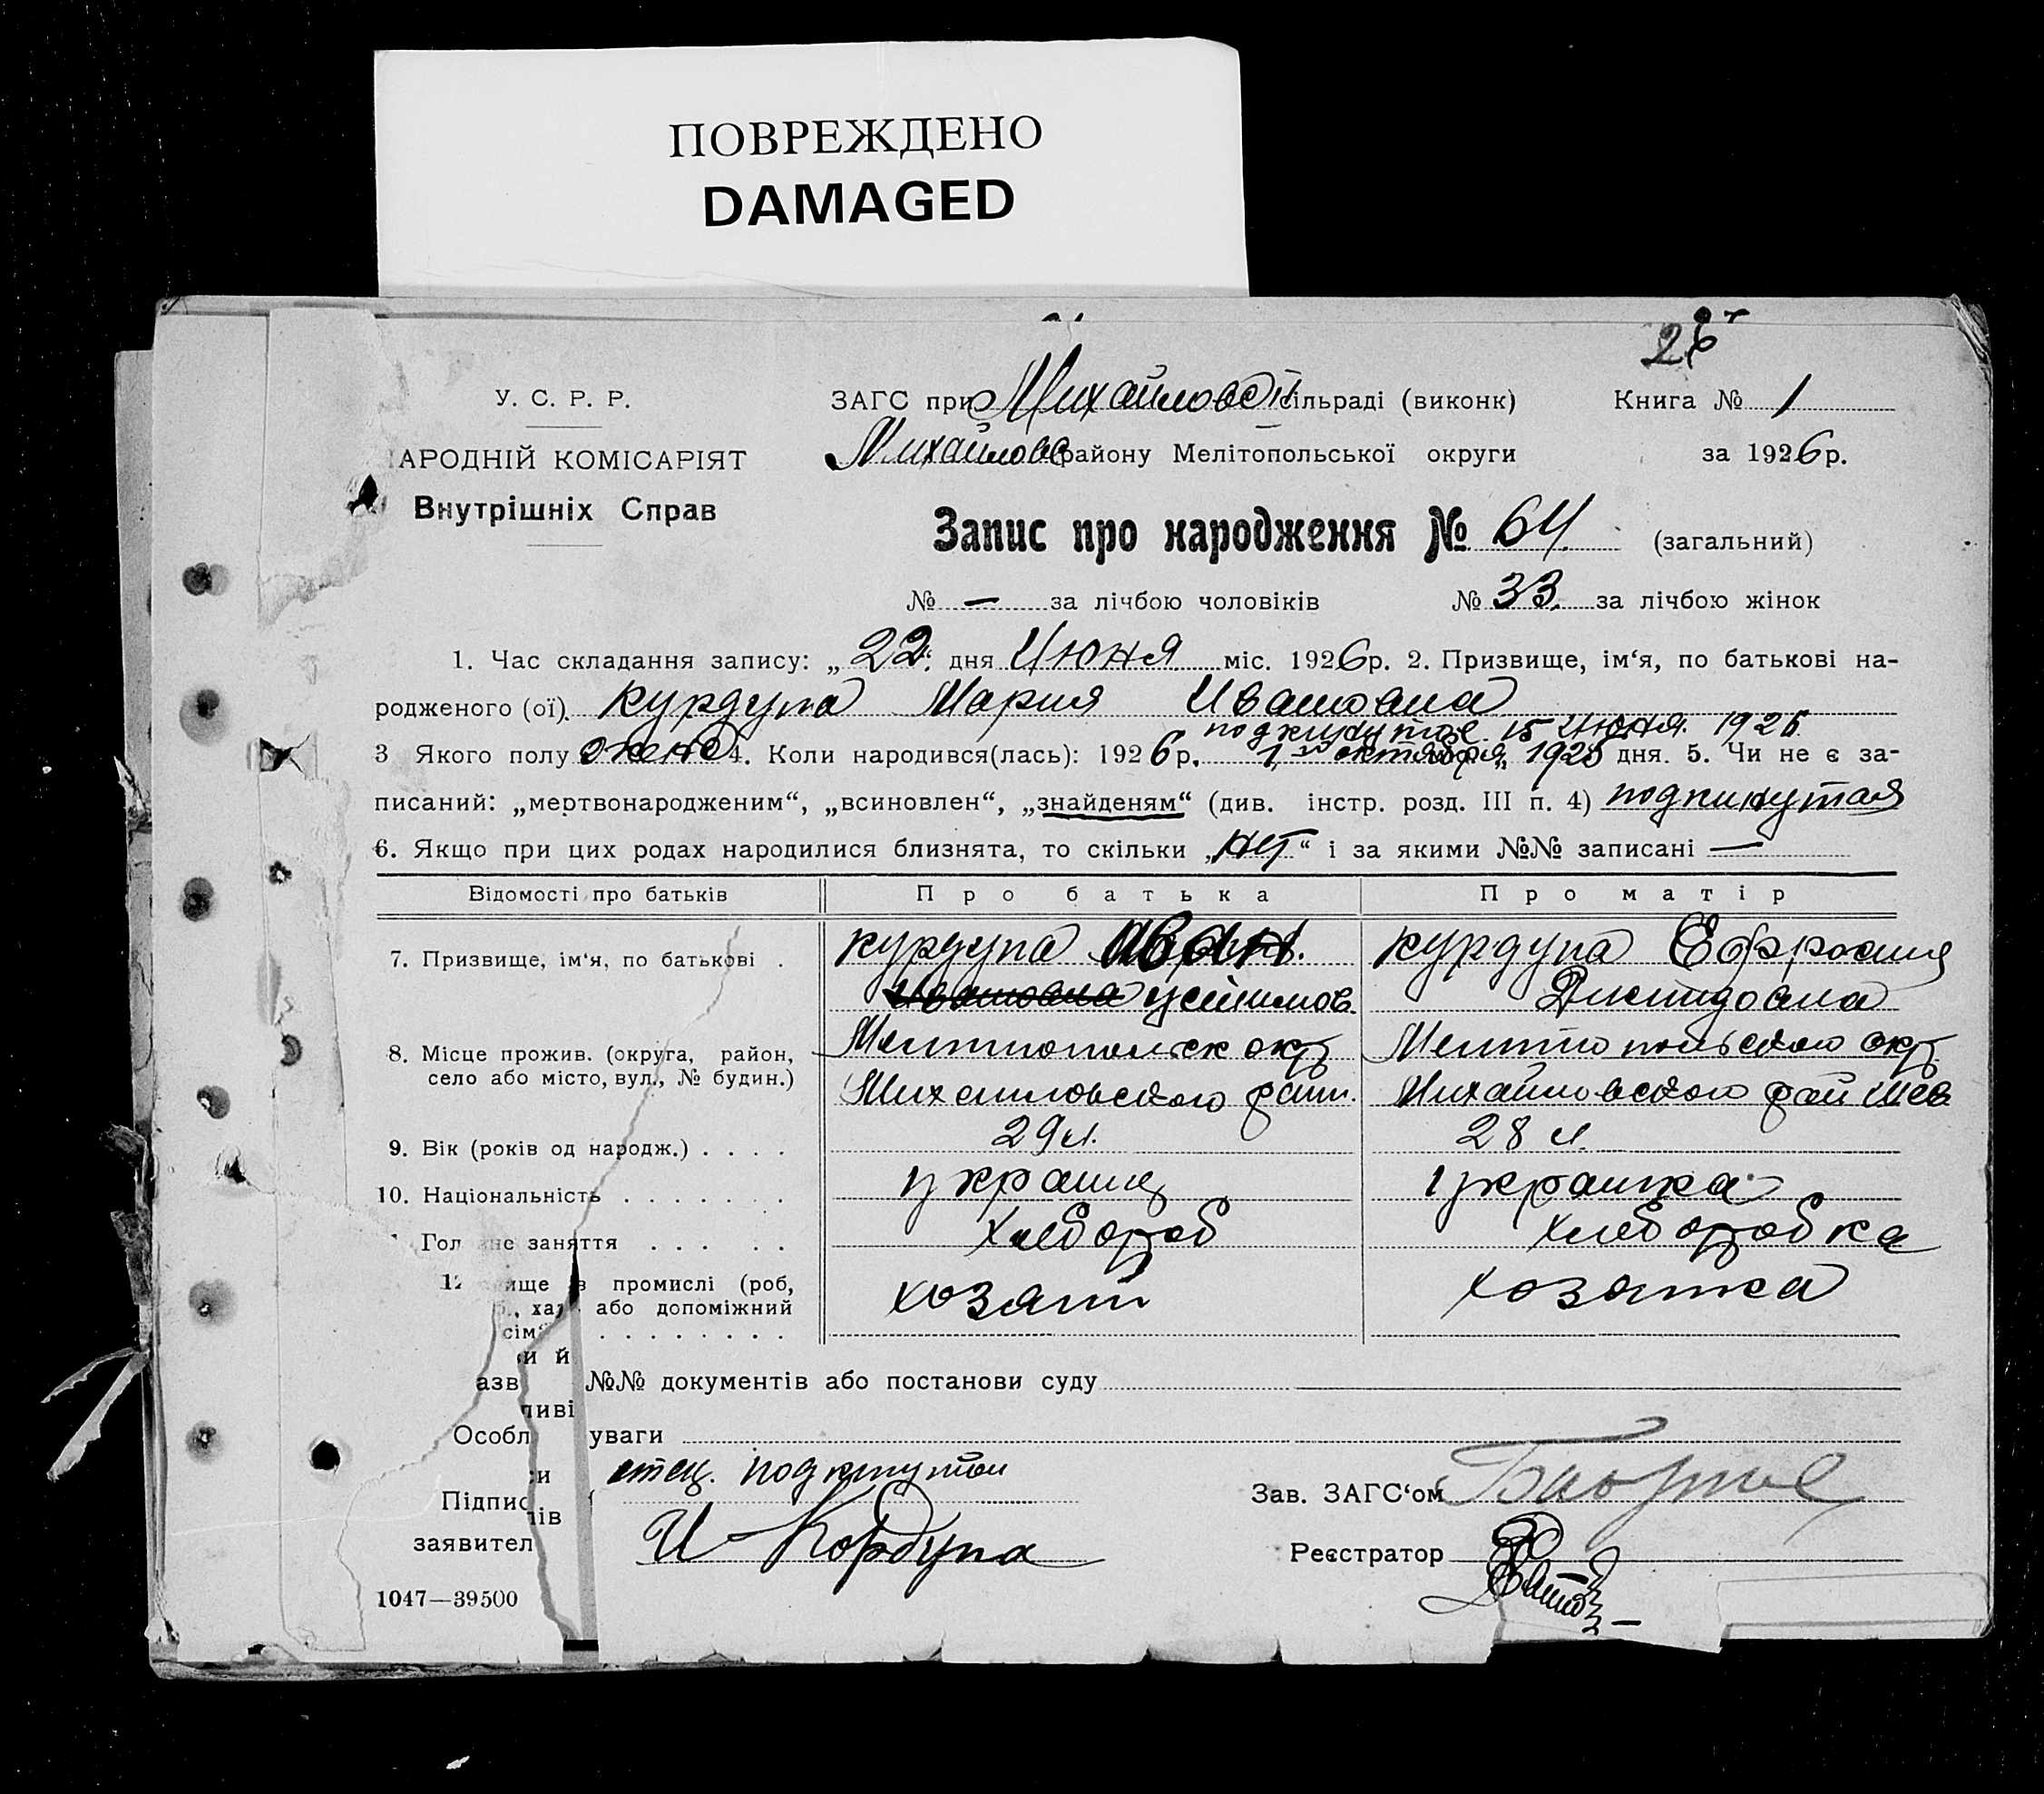 ПОВРЕЖДЕНО
DAMAGED
26
У. С. Р. Р.
ЗАГС при Михайловс сільраді (виконк)
Книга № 1
АРОДНІЙ КОМІСАРІЯТ
Михайловс району Мелітопольської округи
за 1926р.
Внутрішніх Справ
Запис про народження № 64. (загальний)
№ — за лічбою чоловіків № 33. за лічбою жінок
1. Час складання запису: „22“ дня Июня міс. 1926р. 2. Призвище, ім‘я, по батькові на-
родженого (ої). Курдупа Мария Ивановна
подкинутое 15 июня 1926
3 Якого полу женс 4. Коли народився(лась): 1926р. 1го октября 1925 дня. 5. Чи не є за-
писаний: „мертвонародженим“, „всиновлен“, „знайденям“ (див. інстр. розд. III п. 4) подкинутая
6. Якщо при цих родах народилися близнята, то скільки „нет“ і за якими №№ записані —
Відомості про батьків Про батька Про матір
7. Призвище, ім‘я, по батькові . Курдупа Иван. Курдупа
Ивановна
8. Місце прожив. (округа, район, Мелитопольск окр Мелитопольского окр.
село або місто, вул., № будин.) Михайловского район. Михайловского рай
9. Вік (років од народж.) . . . . 29 л. 28 л.
10. Національність . . . . . . . украинц украинка
Гол не заняття . . . . . хлебороб хлеборобка
12 ище в промислі (роб,
., ха або допоміжний хозяин хозяйка
сім . . . . . . . .
и й
азв №№ документів або постанови суду
ливі
Особл уваги
отец. подкинутой
Підпис
ів
заявител И Кордупа
Зав. ЗАГС‘ом
Реєстратор
1047—39500